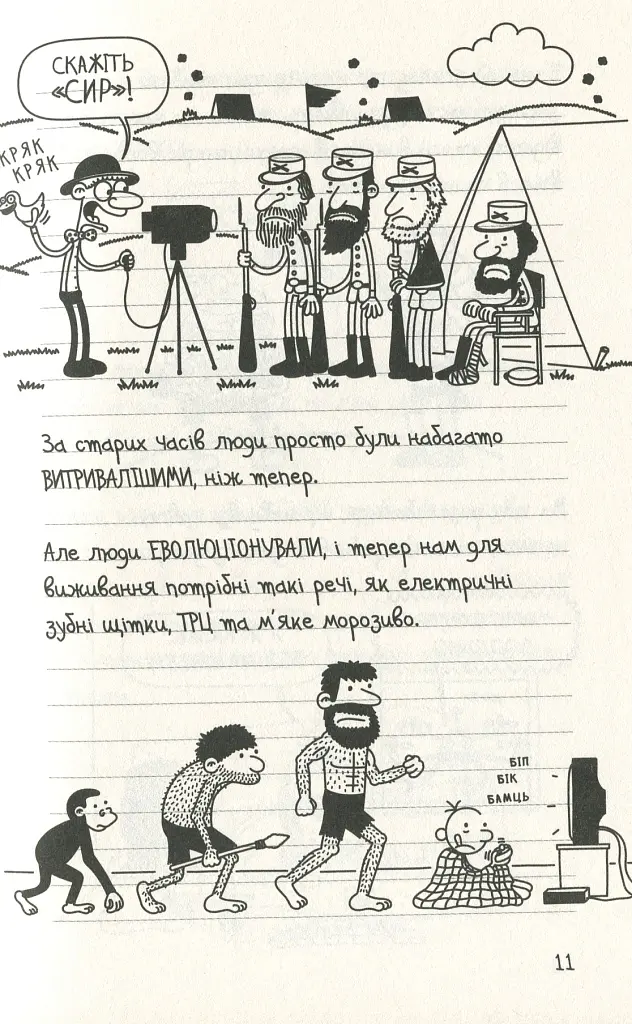 СКАЖІТЬ
«СИР»!
КРЯК
КРЯК
За старих часів люди просто були набагато
ВИТРИВАЛІШИМИ, ніж тепер.
Але люди ЕВОЛЮЦІОНУВАЛИ, і тепер нам для
виживання потрібні такі речі, як електричні
зубні щітки, ТРЦ та м'яке морозиво.
БІП
БІК
БАМЦЬ
11